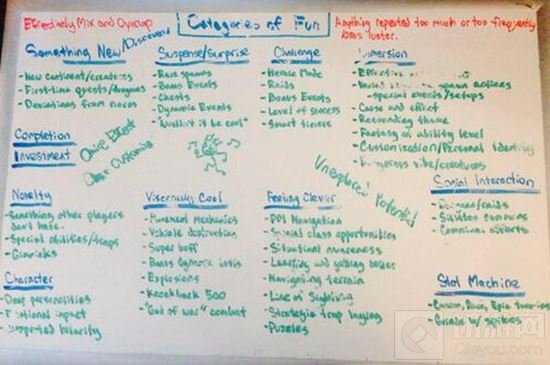 Extremely Mix and Overlap
Categories of Fun
Anything repeated too much or too frequently
loses luster.
Something New/Discovery
- New continent/creatures
- First-time quests/dungeons
- Deviations from norms
Suspense/Surprise
- Rare spawns
- Bonus Events
- Chests
- Dynamic Events
- "Wouldn't it be cool"
Challenge
- Heroic Mode
- Raids
- Bonus Events
- Level of success
- Smart timers
Immersion
- Effective
- spawn actions
- special events/setups
- Cause and effect
- Resounding theme
- Fantasy on ability level
- Customization/Personal identity
- Dangerous vibe/creatures
Completion
Investment
Unexplored Potential
Novelty
- Something other players
don't have.
- Special abilities/
- Gimmicks
Viscerally Cool
- Movement mechanics
- Vehicle destruction
- Super buff
- Explosions
- Knockback 500
- "God of war" combat
Feeling Clever
- Navigation
- Special class opportunities
- Situational awareness
- Learning and getting better
- Navigating terrain
- Line of Sight
- Strategic trap laying
- Puzzles
Social Interaction
- /raids
- summons
- Communal efforts
Character
- Deep personalities
- Emotional impact
- hilarity
Slot Machine
- Epic
Qieyou.com